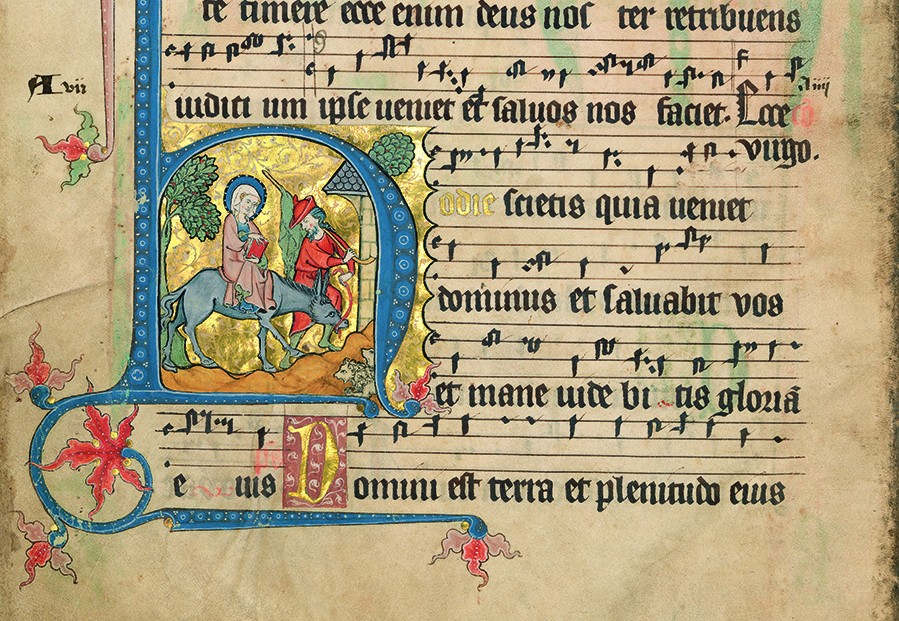 te timere ecce enim deus nos ter retribuens
A vii
iudici um ipse ueniet et saluos nos faciet. Ecce
uirgo.
Hodie scietis quia ueniet
dominus et saluabit vos
et mane uide bi tis gloriā
e ius Domini est terra et plenitudo eius